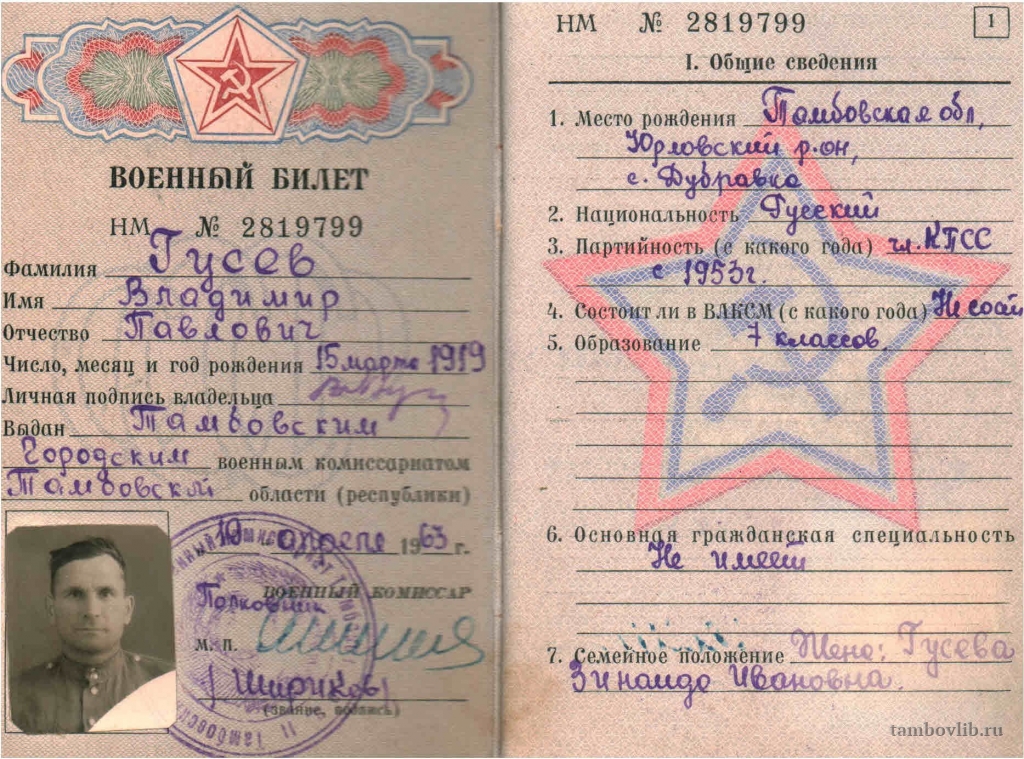 ВОЕННЫЙ БИЛЕТ
НМ № 2819799
Фамилия Гусев
Имя Владимир
Отчество Павлович
Число, месяц и год рождения 15 марта 1919
Личная подпись владельца
Выдан Тамбовским
Городским военным комиссариатом
Тамбовской области (республики)
10 апреля 1963 г.
ВОЕННЫЙ КОМИССАР
Полковник
М. П.
(Шириков)
(звание, подпись)
НМ № 2819799
1
I. Общие сведения
1. Место рождения Тамбовская обл,
Юрловский р.он,
с. Дубравка
2. Национальность Русский
3. Партийность (с какого года) чл. КПСС
с 1953г.
4. Состоит ли в ВЛКСМ (с какого года) Не сост
5. Образование 7 классов.
6. Основная гражданская специальность
Не имеет
7. Семейное положение Жена: Гусева
Зинаида Ивановна.
tambovlib.ru